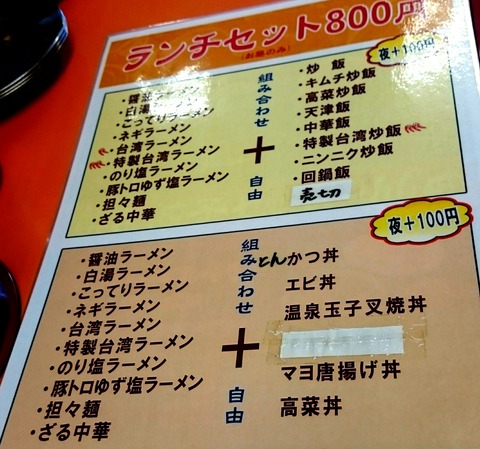 ランチセット800円
(お昼のみ)
夜+100円
・醤油ラーメン
・白湯ラーメン
・こってりラーメン
・ネギラーメン
・台湾ラーメン
・特製台湾ラーメン
・のり塩ラーメン
・豚トロゆず塩ラーメン
・担々麺
・ざる中華
組み合わせ
+
自由
・炒飯
・キムチ炒飯
・高菜炒飯
・天津飯
・中華飯
・特製台湾炒飯
・ニンニク炒飯
・回鍋飯
売切
夜+100円
・醤油ラーメン
・白湯ラーメン
・こってりラーメン
・ネギラーメン
・台湾ラーメン
・特製台湾ラーメン
・のり塩ラーメン
・豚トロゆず塩ラーメン
・担々麺
・ざる中華
組み合わせ
+
自由
とんかつ丼
エビ丼
温泉玉子叉焼丼
マヨ唐揚げ丼
高菜丼